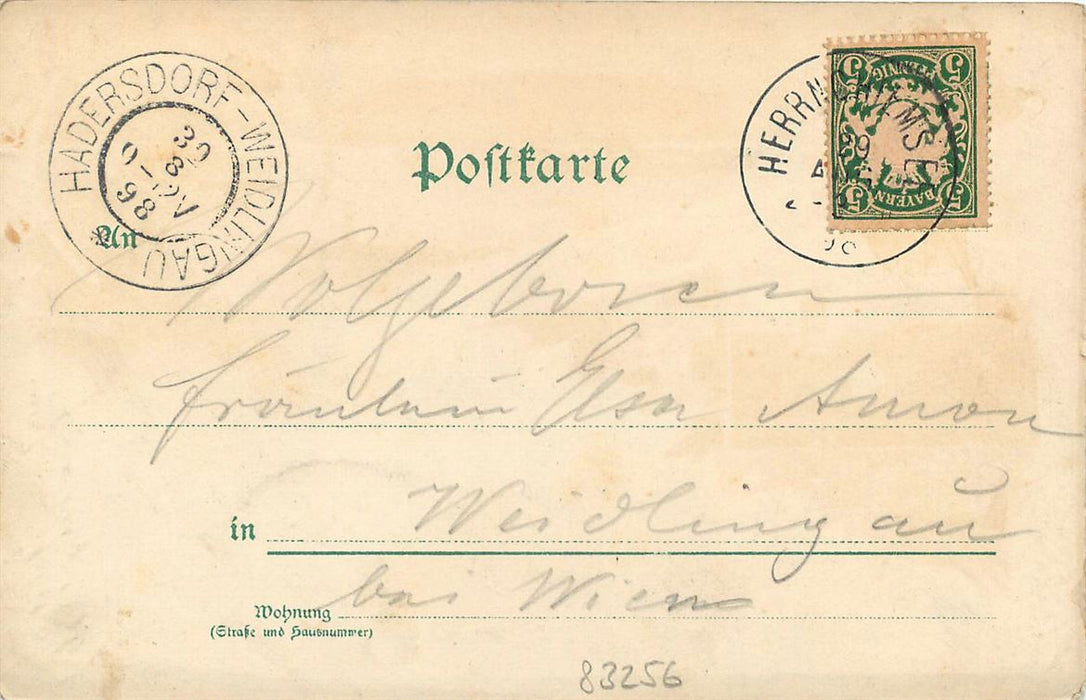 HADERSDORF-WEIDLINGAU
30
8
98
HERRNCHIEMSEE
29
AUG
PFENNIG
5 5
BAYERN
5 5
Postkarte
An
Wolgeboren
Fräulein Elsa Amon
in Weidlingau
bei Wien
Wohnung
(Straße und Hausnummer)
83256